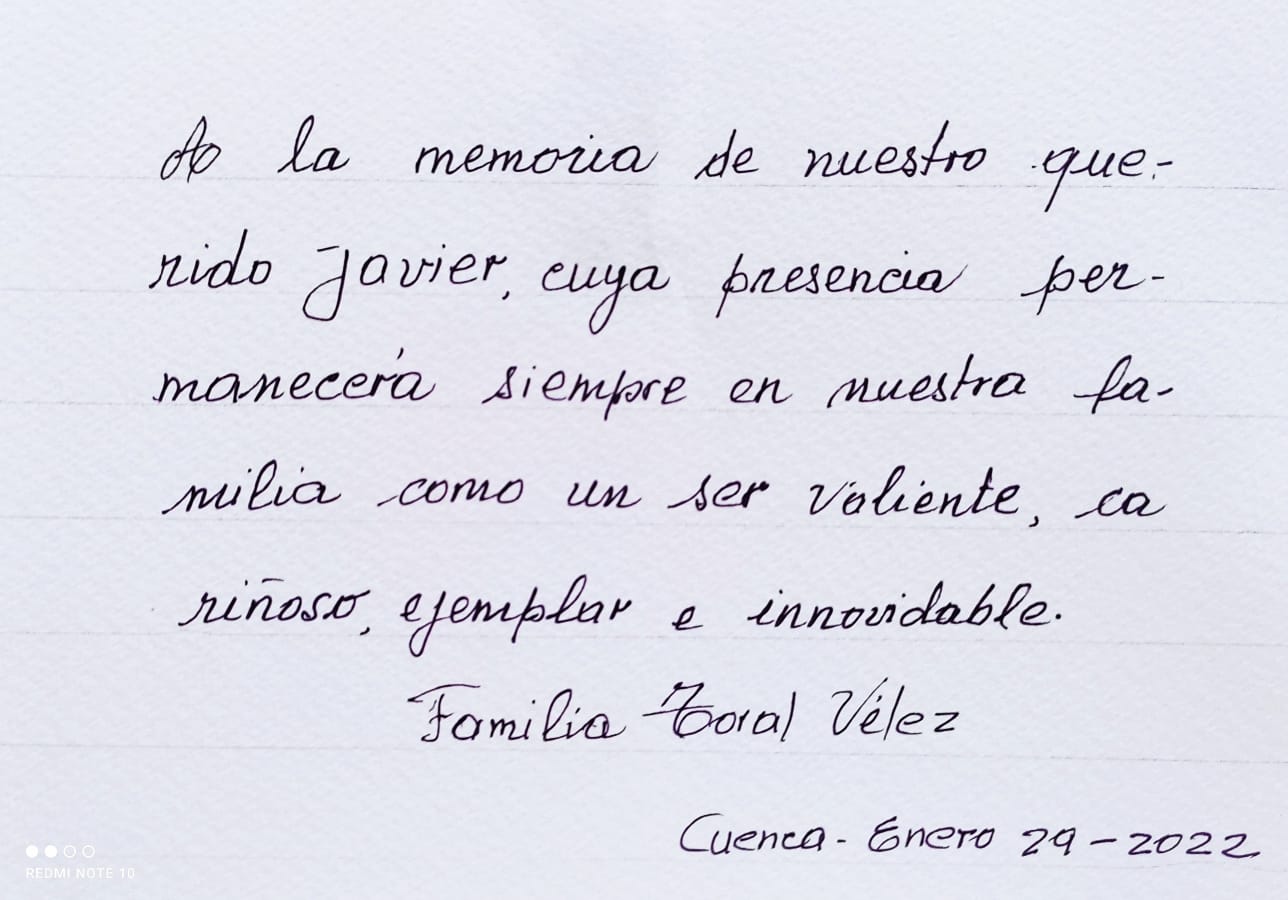 A la memoria de nuestro que-
rido Javier, cuya presencia per-
manecerá siempre en nuestra fa-
milia como un ser valiente, ca
riñoso, ejemplar e innovidable.
Familia Toral Vélez
Cuenca - Enero 29 - 2022
REDMI NOTE 10